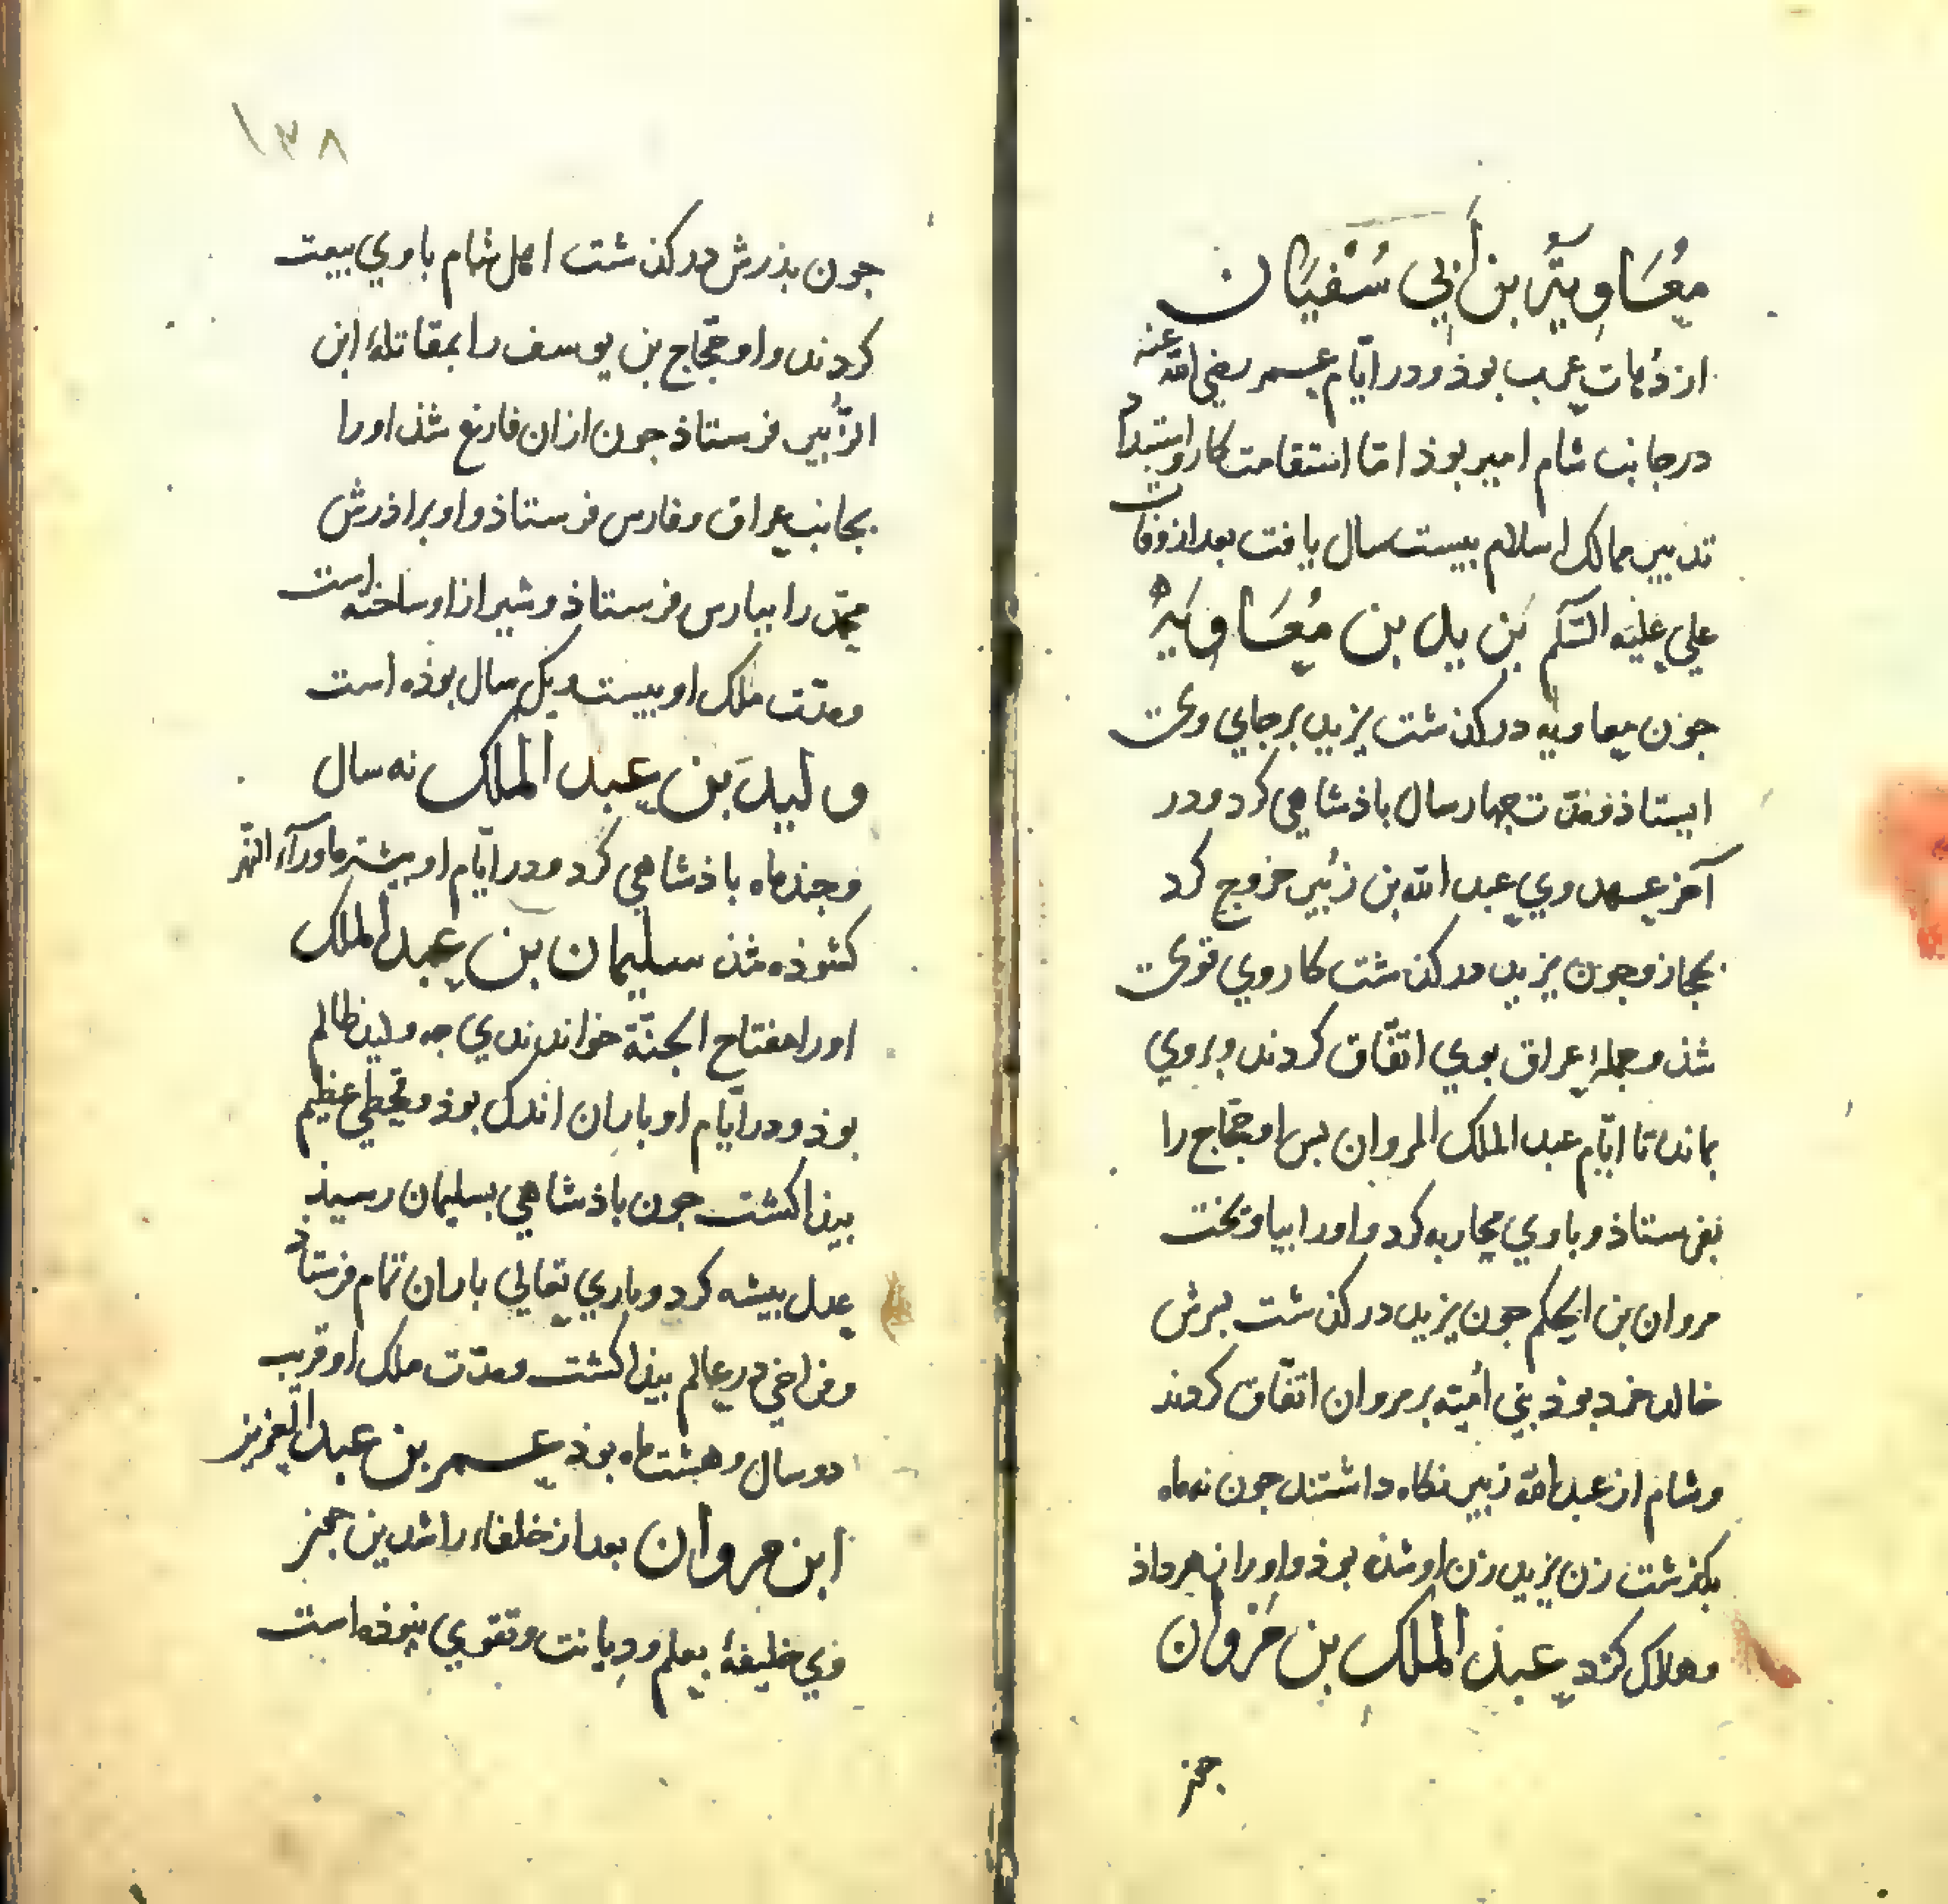 مُعَاوِيَةُ بن أَبِي سُفيَان
از دُهاتِ عرب بوذ و در ايّام عمر رضي الله عنه
در جانب شام امير بوذ امّا استقامت كار و استبداد
تدبير ممالك اسلام بيست سال يافت بعد از وفات
علي عليه السّلم يزيد بن مُعَاوِيَةُ
جون معاويه در كذشت يزيد بر جاي وي
ايستاذ و مدّت جهار سال باذشاهي كرد و در
آخر عهد وي عبد الله بن زُبَير خروج كرد
بحجاز و جون يزيد در كذشت كار وي قوي
شذ و جمله عراق بوي اتّفاق كردند و بر وي
بماند تا ايّام عبد الملك المروان بس او حجّاج را
بفرستاذ و با وي محاربه كرد و اورا بياويخت
مروان بن الحكم جون يزيد در كذشت بسرش
خالد خرد بوذ بني أميّه بر مروان اتّفاق كردند
و شام از عبد الله زبير نكاه داشتند جون نه ماه
بكذشت زن يزيد زن او شذه بوذ و اورا زهر داذ
و هلاك كرد عبد الملك بن مَروان
جون
١٣٨
جون بذرش در كذشت اهل شام با وي بيعت
كردند و او حجّاج بن يوسف را بمقاتلۀ ابن
الزُّبير فرستاذ جون از ان فارغ شذ اورا
بجانب عراق و فارس فرستاذ و او براذرش
محمّد را ببارس فرستاذ و شيراز او ساخته است
و مدّت ملك او بيست و يك سال بوذه است
وليد بن عبد الملك نه سال
و جند ماه باذشاهي كرد و در ايّام او بيشتر ماورآء النّهر
كشوذه شذ سليمان بن عبد الملك
اورا مفتاح الجنّة خواندندي جه وليد ظالم
بوذ و در ايّام او باران اندك بوذ و قحطي عظيم
بيذا كشت جون باذشاهي بسليمان رسيذ
عدل بيشه كرد و باري تعالي باران تمام فرستاذ
و فراخي در عالم بيذا كشت و مدّت ملك او قريب
دو سال و هشت ماه بوذ عمر بن عبد العزيز
ابن مروان بعد از خلفاء راشدين جز
وي خليفۀ بعلم و ديانت و تقوي نبوذه است